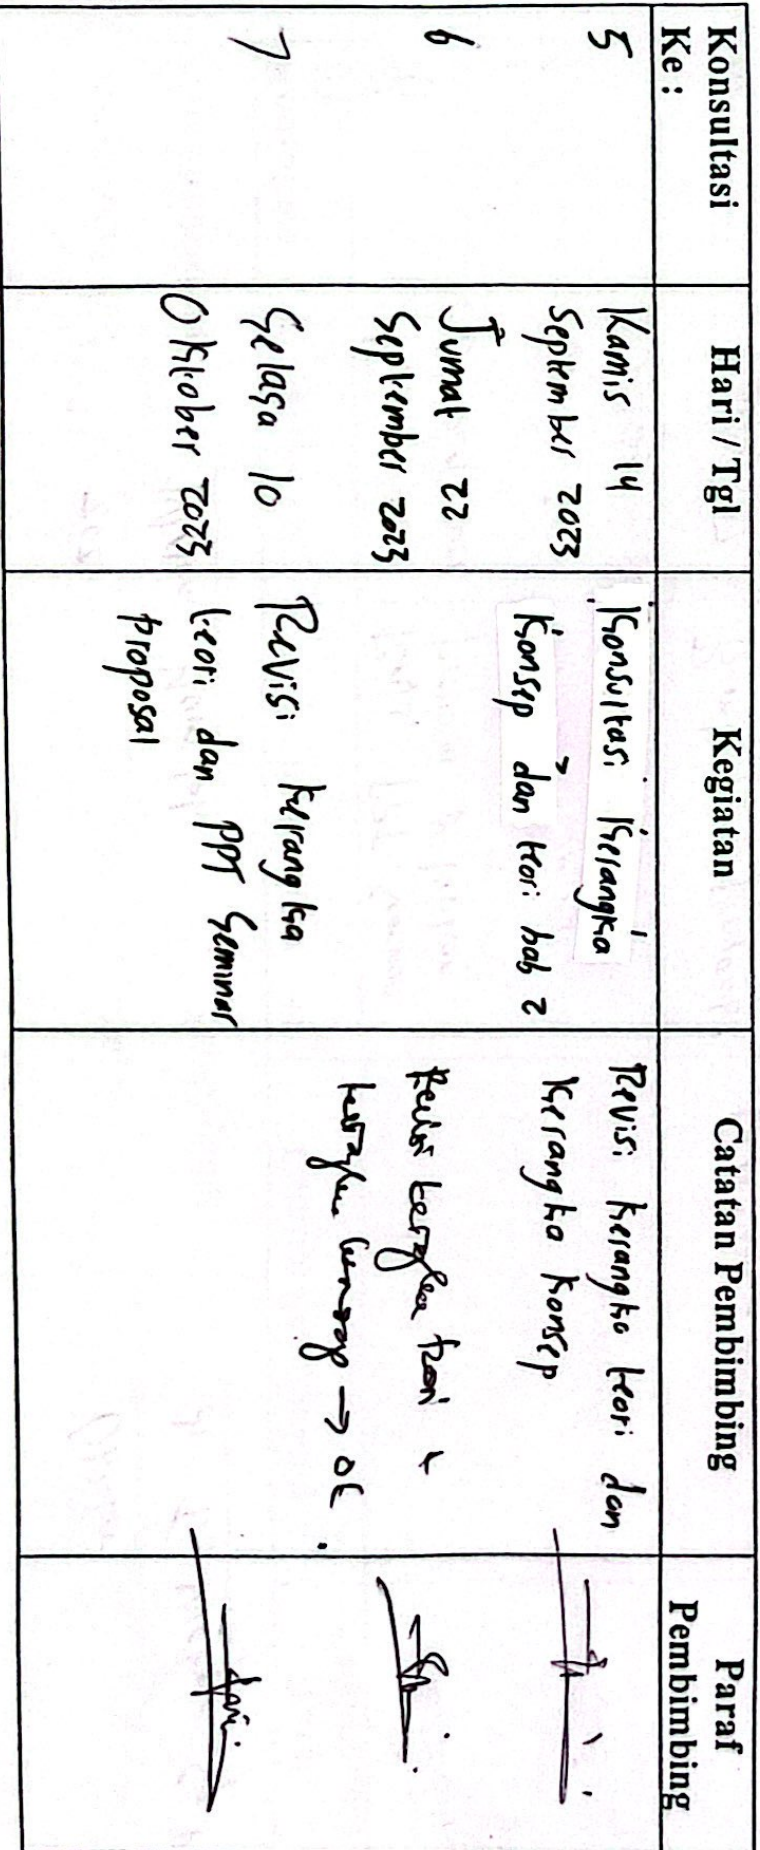 Konsultasi Ke :
Hari / Tgl
Kegiatan
Catatan Pembimbing
Paraf Pembimbing
5
Kamis 14
September 2023
Konsultasi Kerangka
Konsep dan teori bab 2
Revisi kerangka teori dan
kerangka konsep
6
Jumat 22
September 2023
Revisi kerangka teori +
kerangka konsep → OK.
7
Selasa 10
Oktober 2023
Revisi kerangka
teori dan PPT Seminar
proposal